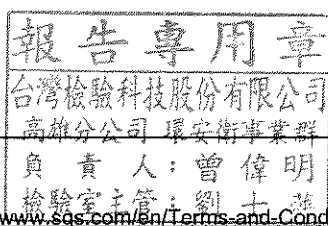 報告專用章
台灣檢驗科技股份有限公司
高雄分公司 環安衛事業群
負責人：曾偉明
檢驗室主管：劉士
www.sgs.com/en/Terms-and-Cond